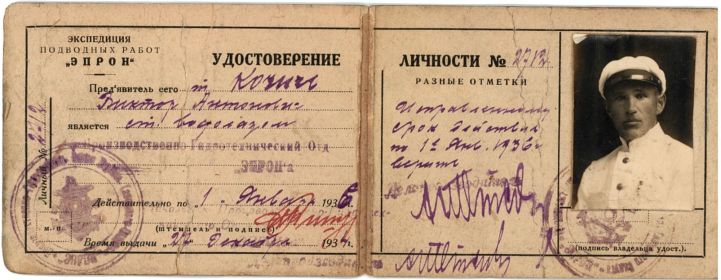 ЭКСПЕДИЦИЯ
ПОДВОДНЫХ РАБОТ
„ЭПРОН“
УДОСТОВЕРЕНИЕ
Пред'явитель сего т.
Виктор Антонович
является ст. водолазом
Производственно Гидротехнический Отд
"ЭПРОН"а
Личность №
Действительно по 1 Января 193
м. п.
(штемпель и подпись)
Время выдачи „27 Декабря 193
ЛИЧНОСТИ № 2712
РАЗНЫЕ ОТМЕТКИ
Исправленному
срок действия
по 1е Янв. 1936 г.
верить
(подпись владельца удост.)